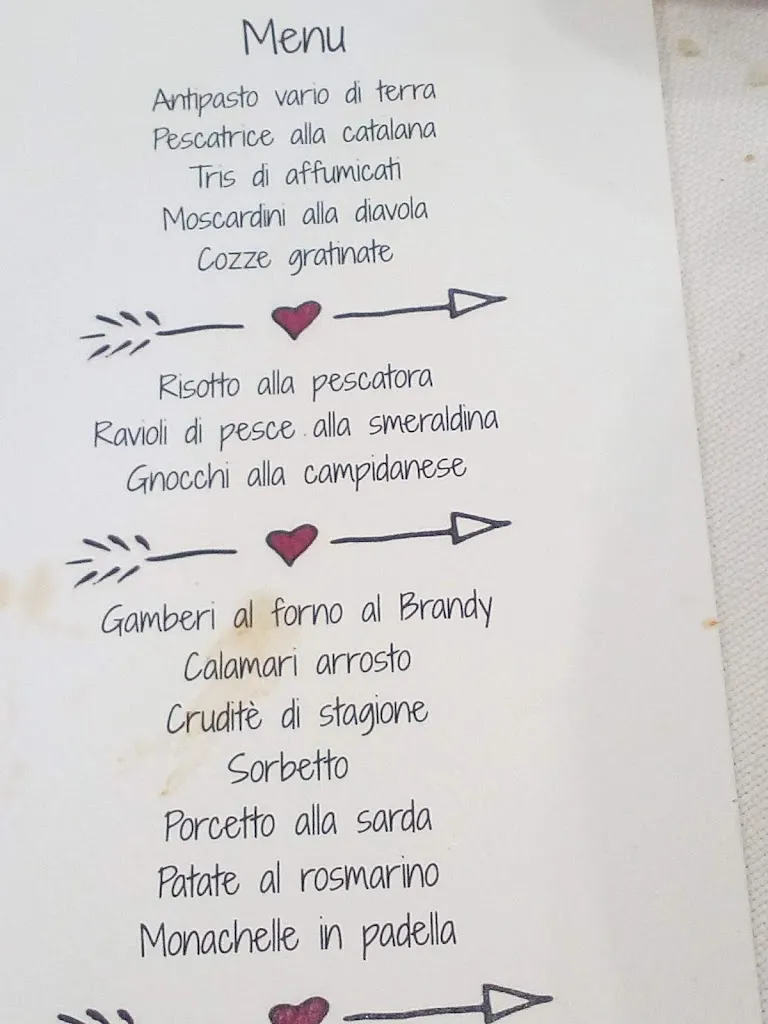 Menu
Antipasto vario di terra
Pescatrice alla catalana
Tris di affumicati
Moscardini alla diavola
Cozze gratinate
Risotto alla pescatora
Ravioli di pesce alla smeraldina
Gnocchi alla campidanese
Gamberi al forno al Brandy
Calamari arrosto
Cruditè di stagione
Sorbetto
Porcetto alla sarda
Patate al rosmarino
Monachelle in padella